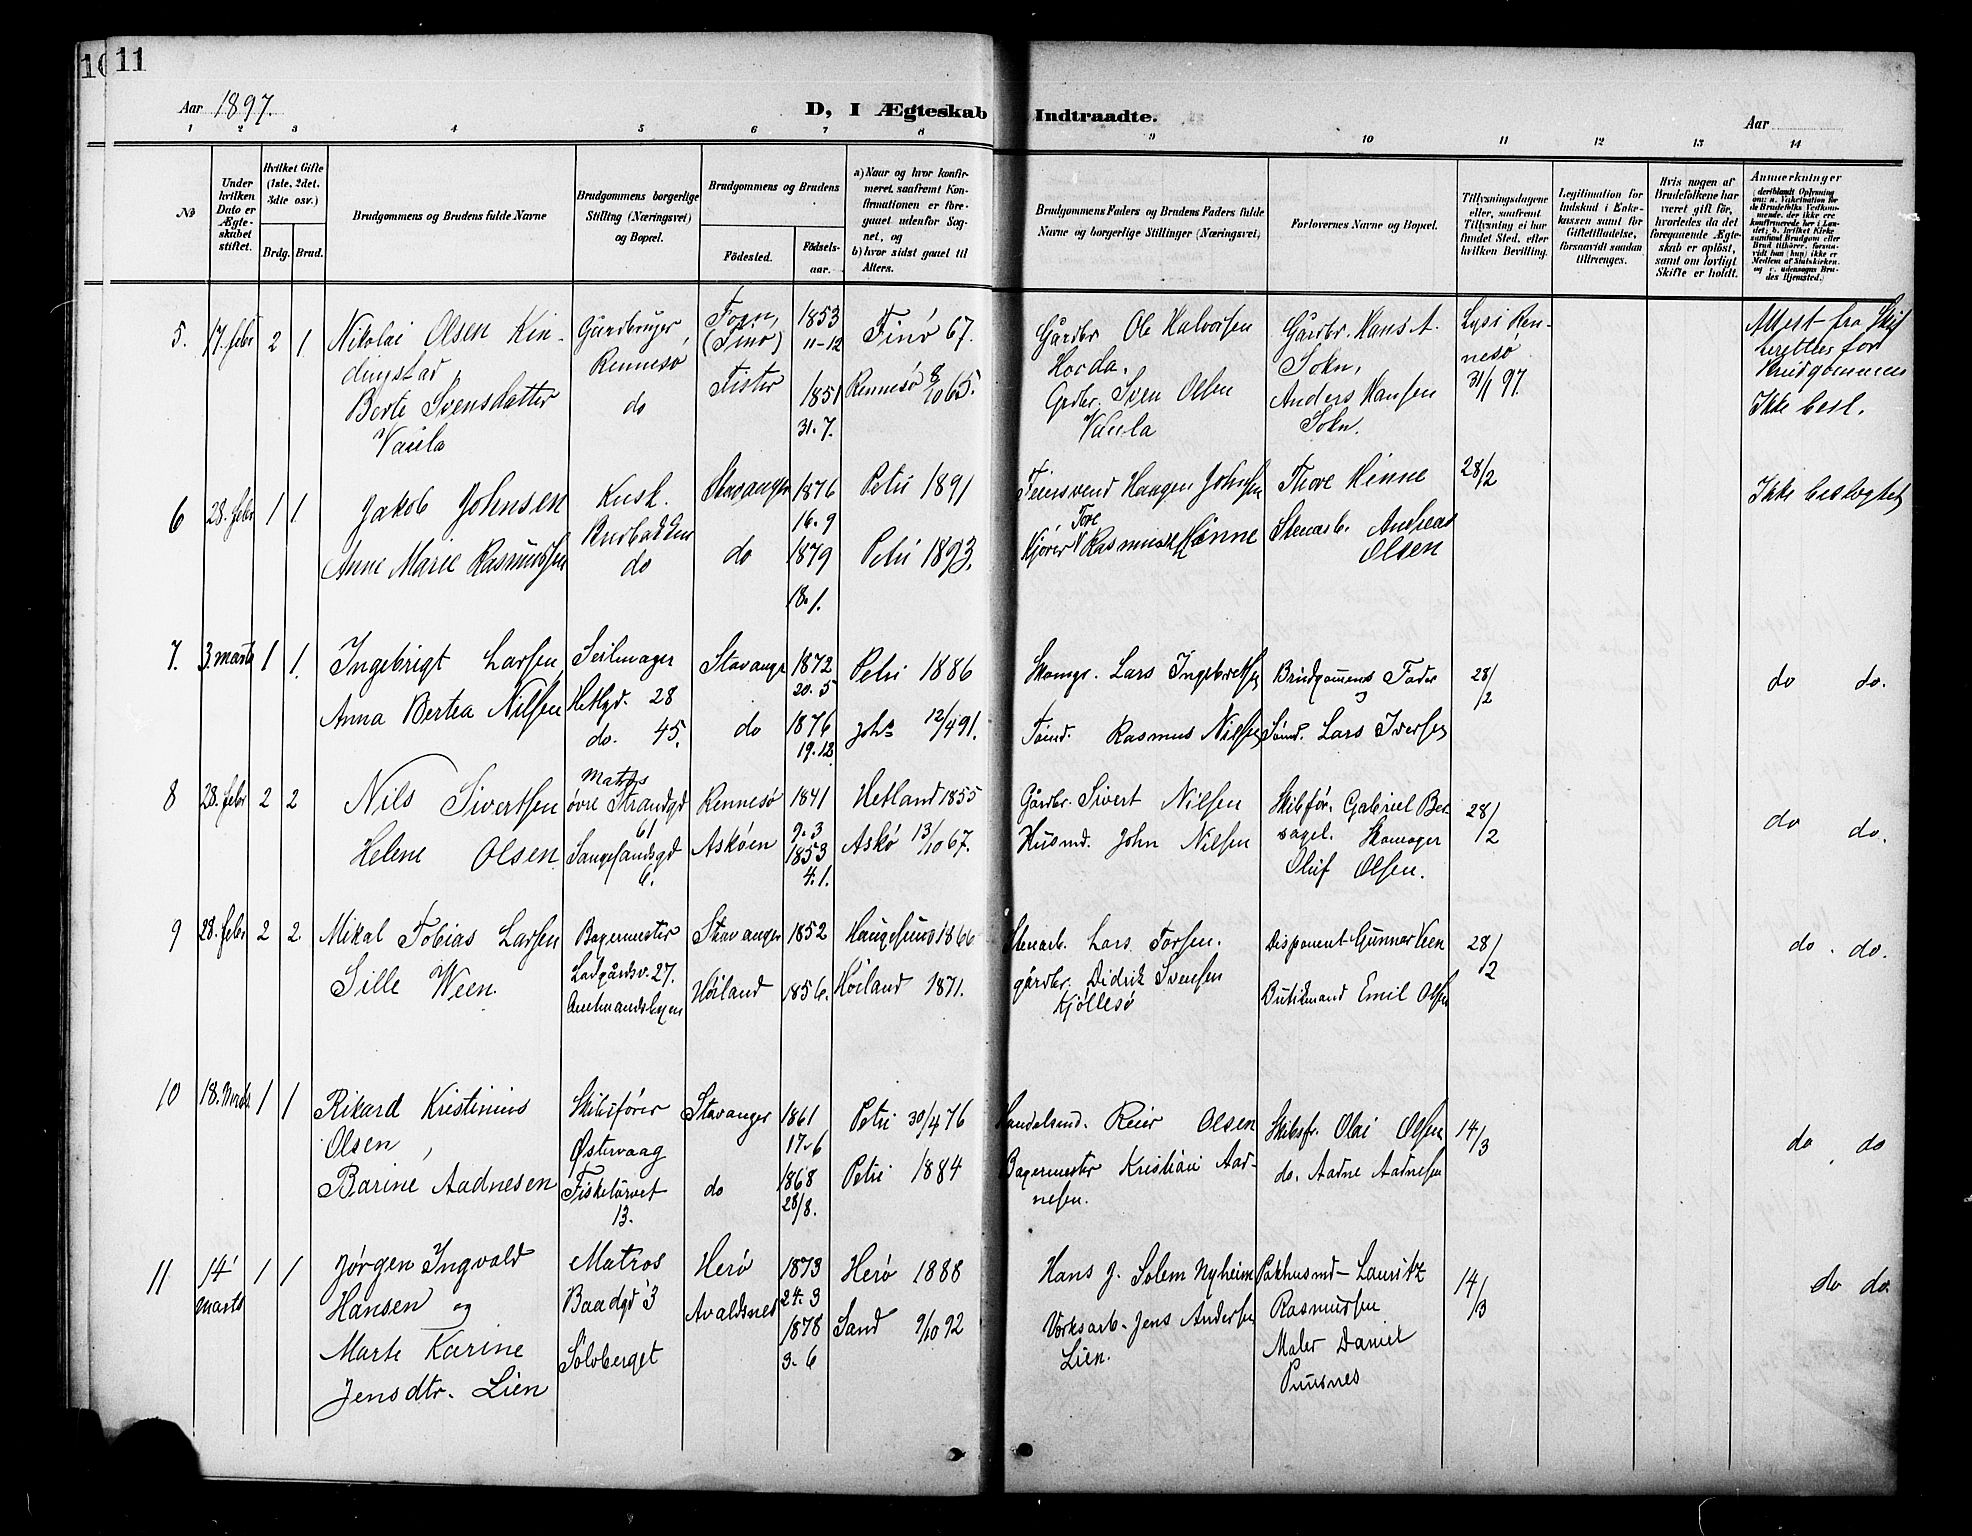 11
Aar 1897.
D, I Ægteskab Indtraadte.
Aar
1 2 3 4 5 6 7 8 9 10 11 12 13 14
No
Under hvilken Dato er Ægteskabet stiftet.
Hvilket Gifte (1ste, 2det, 3die osv.)
Brdg. Brud.
Brudgommens og Brudens fulde Navne
Brudgommens borgerlige Stilling (Næringsvei) og Bopæl.
Brudgommens og Brudens
Födested. Födsels-aar.
a) Naar og hvor konfirmeret, saafremt Konfirmationen er foregaaet udenfor Sognet, og
b) hvor sidst gaaet til Alters.
Brudgommens Faders og Brudens Faders fulde Navne og borgerlige Stillinger (Næringsvei)
Forlovernes Navne og Bopæl.
Tillysningsdagene eller, saafremt Tillysning ei har fundet Sted, efter hvilken Bevilling.
Legitimation for Indskud i Enkekassen samt for Giftetilladelse, forsaavidt saadan tiltrænges.
Hvis nogen af Brudefolkene har været gift før, hvorledes da det foregaaende Ægteskab er opløst, samt om lovligt Skifte er holdt.
Anmærkninger
5. 17. febr 2 1 Nikolai Olsen Kindingstad, Gaardbruger Rennesø Fogn, (Finø) 1853 11-12 Finø 67. Gårdbr Ole Halvorsen Horda. Gårdbr. Hans A. Sokn, Lysi Rennesø 31/1 97. Attest fra Skifteretten for Brudgommen
Berte Svensdatter Vaula do Fister 1851 31.7. Rennesø 8/10 65. Grdbr. Sven Olsen Vaula Anders Hansen Sokn. Ikke besl.
6 28. febr 1 1 Jakob Johnsen Kusk. Stavanger 1876 16.9 Petri 1891 Feiersvend Haagen Johnsen Thore Hinne 28/2 Ikke beslægtet
Anne Marie Rasmussen do do 1879 18.1. Petri 1893. Kjører Tore Rasmussen Hinne Stenarb. Andreas Olsen
7. 3. marts 1 1. Ingebrigt Larsen Seilmager Hetlgd. 28 Stavanger 1872 20.5 Petri 1886 Skomgr. Lars Ingebretsen Brudgommens Fader og 28/2 do do.
Anna Bertea Nilsen do. 45. do 1876 19.12 Johs 12/4 91. Tømd. Rasmus Nilsen Tømd. Lars Iversen
8 28. febr 2 2 Nils Sivertsen Matros øvre Strandgd 61 Rennesø 1841 9.3 Hetland 1855 Gårdbr. Sivert Nilsen Skibsfør. Gabriel Bersagel. 28/2 do do.
Helene Olsen 6. Askøen 1853 4.1. Askø 13/10 67. Husmd. John Nilsen Skomager Oluf Olsen.
9 28. febr 2 2. Mikal Tobias Larsen Bagermester Ladgårdsv. 27. Stavanger 1852 Haugesund 1866 Stenarb. Lars Torsen. Disponent Gunnar Veen 28/2 do. do.
Sille Veen. Høiland 1856. Høiland 1871. gårdbr. Didrik Svensen Kjøllesø Butikmand Emil Olsen
10 18. Marts 1 1 Rikard Kristinius Olsen, Skibsfører Østervaag Stavanger 1861 17-6 Petri 30/4 76 Handelsmd. Reier Olsen Skibsfr. Olai Olsen 14/3 do do
Barine Aadnesen Fisketorvet 13. do 1868 28/8. Petri 1884 Bagermester Kristian Aadnesen. do. Aadne Aadnesen
11 14 marts 1 1 Jørgen Ingvald Hansen og Matros Baadgd 3 Herø 1873 24.3 Herø 1888 Hans J. Solem Nyheim Pakhusmd- Lauritz Rasmussen 14/3 do do.
Marte Karine Jensdtr. Lien Sølvberget Avaldsnes 1878 3-6 Sand 9/10 92 Verksarb. Jens Andersen Lien. Maler Daniel